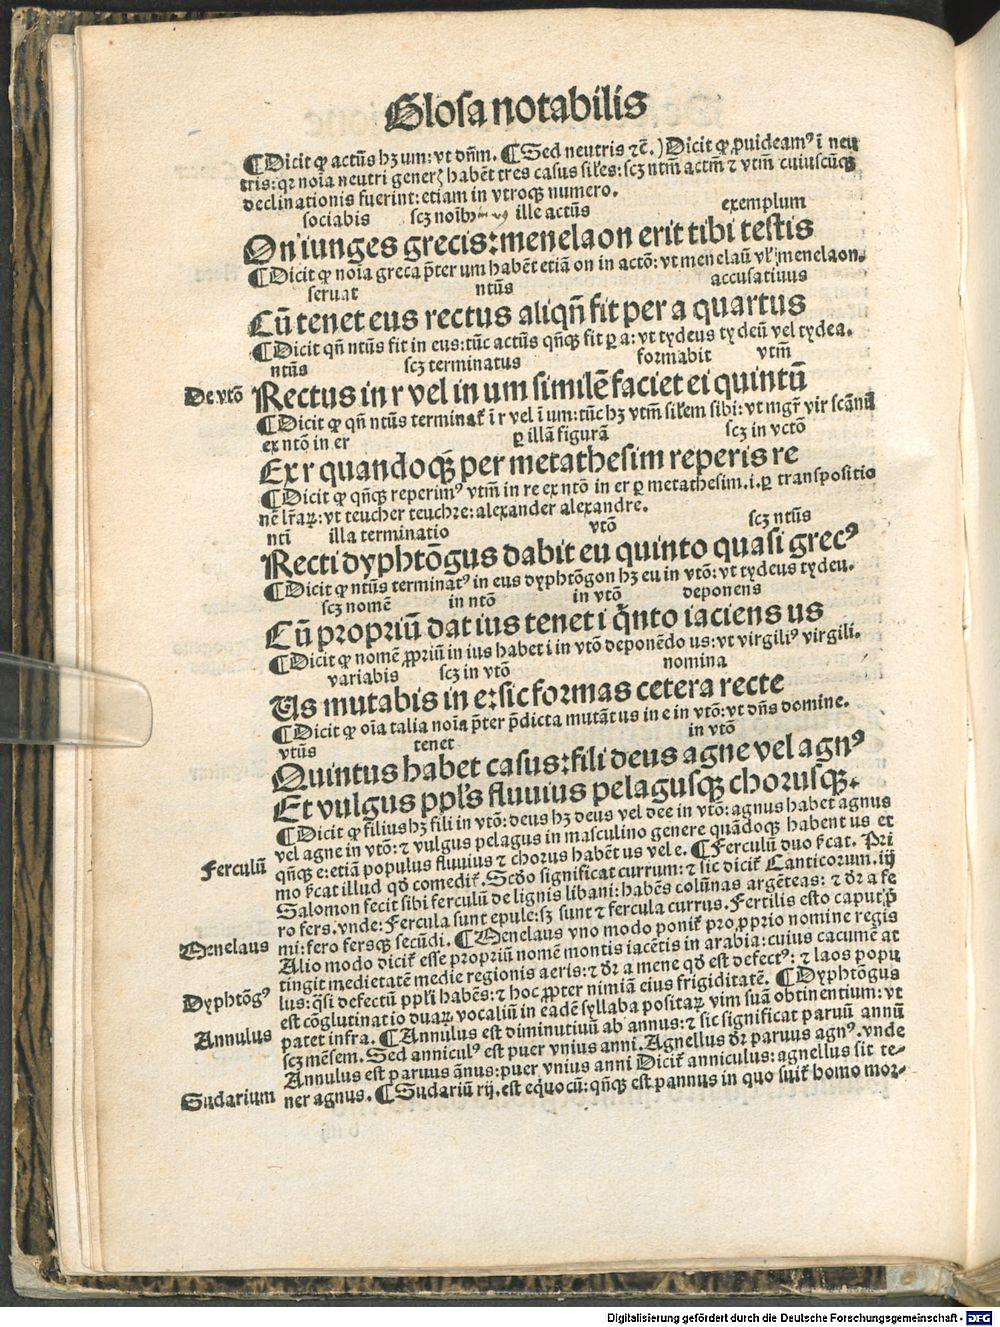 Glosa notabilis
¶Dicit ꝙ actūs hꝫ um: vt dn̄m. ¶Sed neutris ⁊c̄.) Dicit ꝙ ꝓuideamꝰ ī neu
tris: qꝛ noīa neutri generꝭ habēt tres casus siles: scꝫ ntm̄ actm̄ ⁊ vtm̄ cuiuscūqꝫ
declinationis fuerint: etiam in vtroqꝫ numero.
sociabis scꝫ ille actūs exemplum
On iunges grecis: menelaon erit tibi testis
¶Dicit ꝙ noīa greca p̄ter um habēt etiā on in actō: vt menelaū vl' menelaon.
seruat ntūs accusatiuus
Cū tenet eus rectus aliqn̄ fit per a quartus
¶Dicit qn̄ ntūs fit in eus: tūc actūs qn̄qꝫ fit ꝑ a: vt tydeus tydeū vel tydea.
ntūs scꝫ terminatus formabit vtm̄
De vtō Rectus in r vel in um similē faciet ei quintū
¶Dicit ꝙ qn̄ ntūs terminat̄ ī r vel ī um: tūc hꝫ vtm̄ silem sibi: vt mgr̄ vir scānū
ex ntō in er ꝑ illā figurā scꝫ in vctō
Ex r quandoqꝫ per metathesim reperis re
¶Dicit ꝙ qn̄qꝫ reperimꝰ vtm̄ in re ex ntō in er ꝑ metathesim.i.ꝑ transpositio
nē lr̄aꝝ: vt teucher teuchre: alexander alexandre.
ntī illa terminatio vtō scꝫ ntūs
Recti dyphtōgus dabit eu quinto quasi grecꝰ
¶Dicit ꝙ ntūs terminatꝰ in eus dyphtōgon hꝫ eu in vtō: vt tydeus tydeu.
scꝫ nomē in ntō in vtō deponens
Cū propriū dat ius tenet i q̄nto iaciens us
¶Dicit ꝙ nomē ꝓpriū in ius habet i in vtō deponēdo us: vt virgiliꝰ virgili.
variabis scꝫ in vtō nomina
Us mutabis in e: sic formas cetera recte
¶Dicit ꝙ oīa talia noīa p̄ter p̄dicta mutāt us in e in vtō: vt dn̄s domine.
vtūs tenet in vtō
Quintus habet casus: fili deus agne vel agnꝰ
Et vulgus ppl's fluuius pelagusqꝫ chorusqꝫ.
¶Dicit ꝙ filius hꝫ fili in vtō: deus hꝫ deus vel dee in vtō: agnus habet agnus
vel agne in vtō: ⁊ vulgus pelagus in masculino genere quādoqꝫ habent us et
Ferculū qn̄qꝫ e: etiā populus fluuius ⁊ chorus habēt us vel e. ¶Ferculū duo s̄cat. Pri
mo s̄cat illud qd̄ comedit̄. Scdo significat currum: ⁊ sic dicit̄ Canticorum.iij
Salomon fecit sibi ferculū de lignis libani: habēs colūnas argēteas: ⁊ dr̄ a fe
ro fers. vnde: Fercula sunt epule: sꝫ sunt ⁊ fercula currus. Fertilis esto caput p̄
Menelaus mi: fero fersqꝫ secūdi. ¶Menelaus vno modo ponit̄ pro ꝓprio nomine regis
Alio modo dicit̄ esse propriū nomē montis iacētis in arabia: cuius cacumē at
tingit medietatē medie regionis aeris: ⁊ dr̄ a mene qd̄ est defectꝰ: ⁊ laos popu
Dyphtōgꝰ lus: q̄si defectū ppl'i habēs: ⁊ hoc ꝓpter nimiā eius frigiditatē. ¶Dyphtōgus
est cōglutinatio duaꝝ vocaliū in eadē syllaba positaꝝ vim suā obtinentium: vt
Annulus patet infra. ¶Annulus est diminutiuū ab annus: ⁊ sic significat paruū annū
scꝫ mēsem. Sed anniculꝰ est puer vnius anni. Agnellus dr̄ paruus agnꝰ. vnde
Annulus est paruus ānus: puer vnius anni Dicit̄ anniculus: agnellus sit te-
Sudarium ner agnus. ¶Sudariū rij. est equocū: qn̄qꝫ est pannus in quo homo mor-
Digitalisierung gefördert durch die Deutsche Forschungsgemeinschaft - DFG